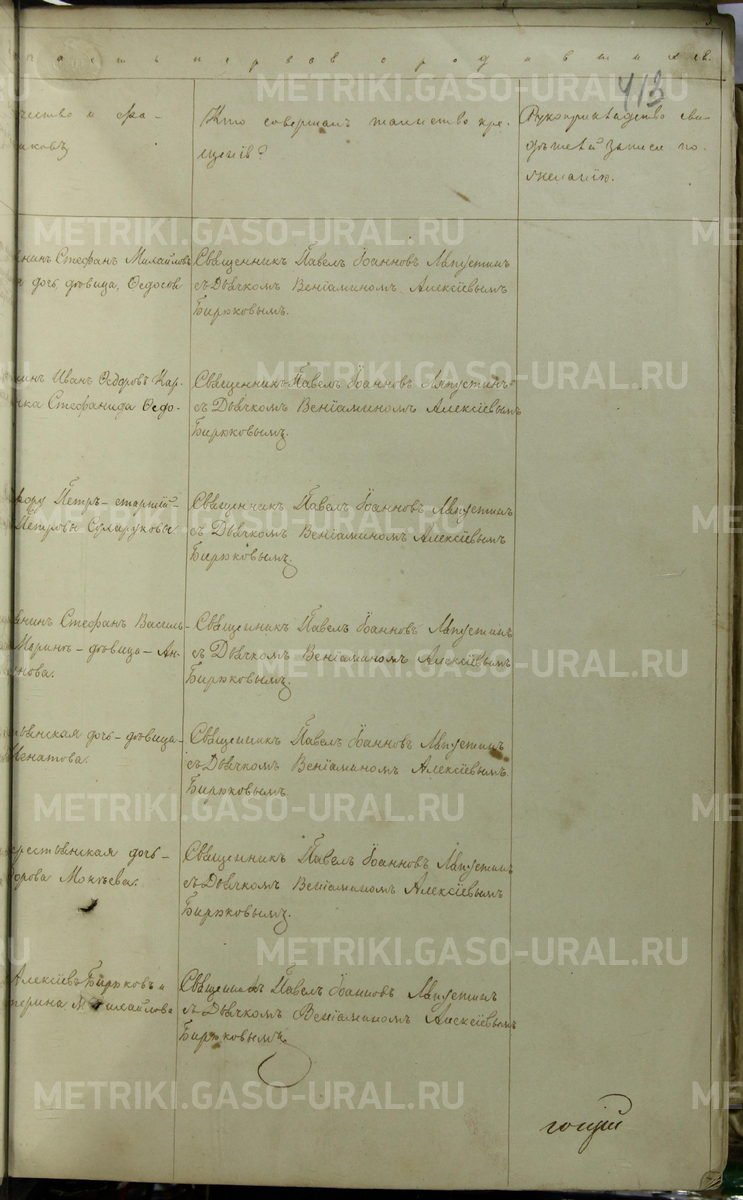 часть первая о родившихся.
413
чество и фа-
Кто совершалъ таинство кре-
щенія?
Рукоприкладство сви-
дѣтелей записи по
желанію.
нинъ Стефанъ Михайловъ
дочь дѣвица, Федосія
Священникъ Павелъ Іоанновъ Ляпустинъ
съ Дьячкомъ Веніаминомъ Алексіевымъ
Бирюковымъ.
нинъ Иванъ Ѳедоровъ Кар-
ка Стефанида Ѳедо-
Священникъ Павелъ Іоанновъ Ляпустинъ
съ Дьячкомъ Веніаминомъ Алексіевымъ
Бирюковымъ.
Петръ – старшій –
Петровы Сухаруковы
Священникъ Павелъ Іоанновъ Ляпустинъ
съ Дьячкомъ Веніаминомъ Алексіевымъ
Бирюковымъ.
нинъ Стефанъ Василь-
– дѣвица – Ан-
нова.
Священникъ Павелъ Іоанновъ Ляпустинъ
съ Дьячкомъ Веніаминомъ Алексіевымъ
Бирюковымъ.
янская дочь – дѣвица –
Игнатова.
Священникъ Павелъ Іоанновъ Ляпустинъ
съ Дьячкомъ Веніаминомъ Алексіевымъ
Бирюковымъ.
рестьянская дочь –
дорова Мокѣева.
Священникъ Павелъ Іоанновъ Ляпустинъ
съ Дьячкомъ Веніаминомъ Алексіевымъ
Бирюковымъ.
Алексіевъ Бирюковъ и
терина Михайлова
Священникъ Павелъ Іоанновъ Ляпустинъ
съ Дьячкомъ Веніаминомъ Алексіевымъ
Бирюковымъ.
METRIKI.GASO-URAL.RU